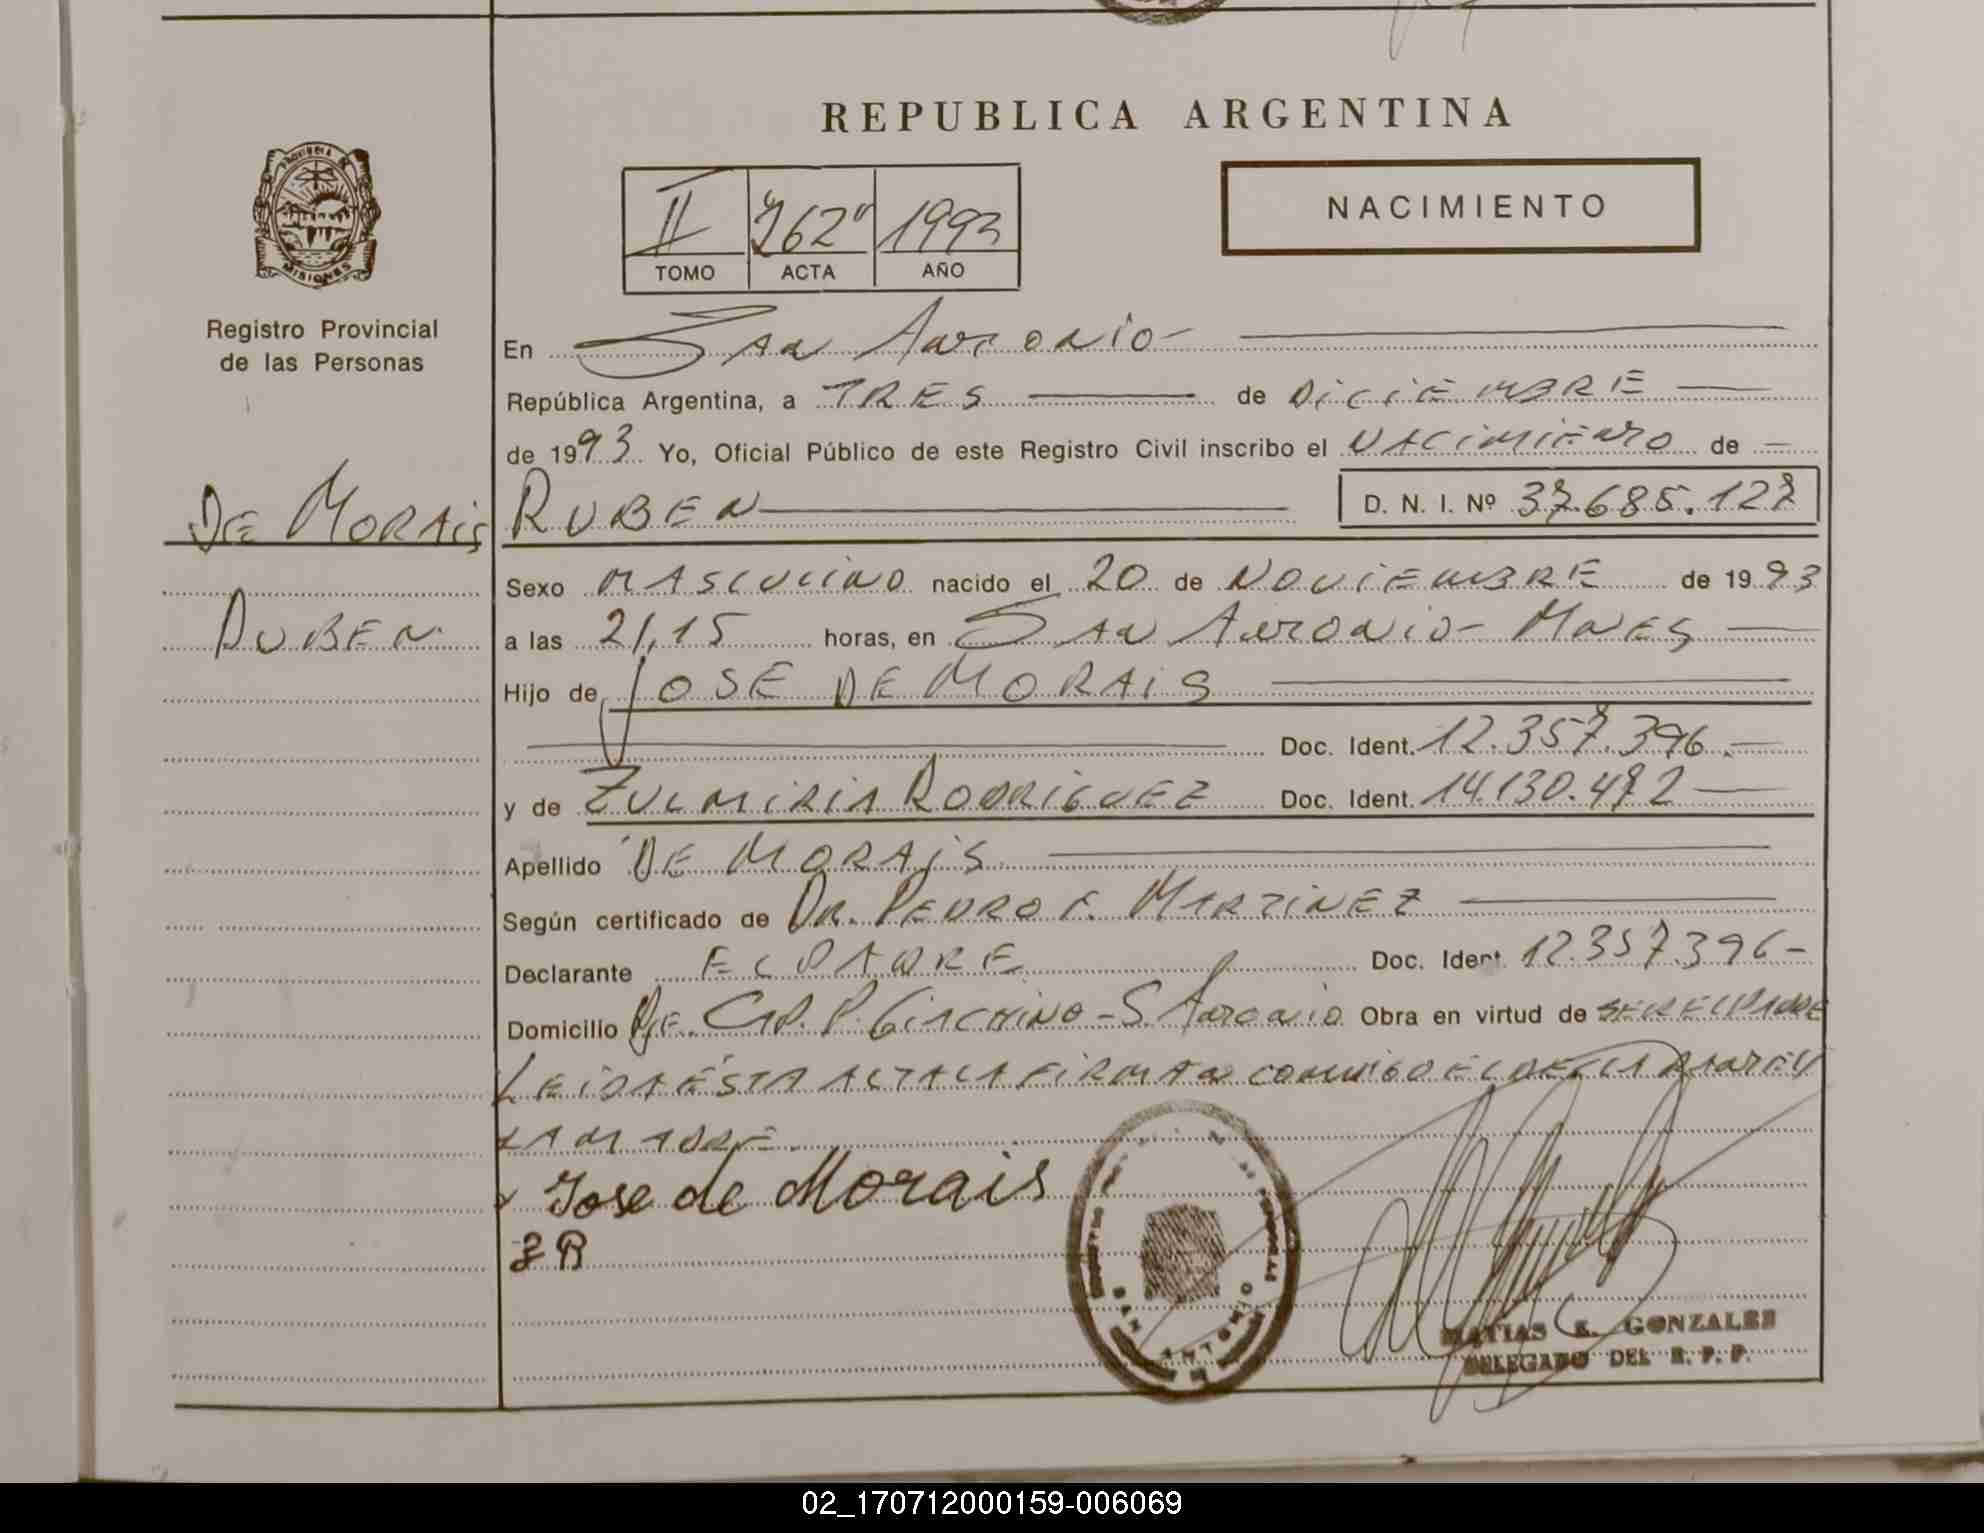 REPUBLICA ARGENTINA
PROVINCIA DE
MISIONES
Registro Provincial
de las Personas
II 262" 1993
TOMO ACTA AÑO
NACIMIENTO
En San Antonio-
República Argentina, a TRES de DICIEMBRE
de 1993 Yo, Oficial Público de este Registro Civil inscribo el NACIMIENTO de
DE MORAIS
RUBEN
RUBEN D. N. I. Nº 37.685.127
Sexo MASCULINO nacido el 20 de NOVIEMBRE de 1993
a las 21,15 horas, en SAN ANTONIO- MNES
Hijo de JOSE DE MORAIS
Doc. Ident. 12.357.396.-
y de ZULMIRIA RODRIGUEZ Doc. Ident. 14.130.472
Apellido DE MORAIS
Según certificado de DR. PEDRO F. MARTINEZ
Declarante EL PADRE Doc. Ident. 12.357.396-
Domicilio Bje. CAP. P. GIACHINO - S. Antonio Obra en virtud de SER EL PADRE
LEIDA ESTA ACTA LA FIRMAN CONMIGO EL DECLARANTE Y
LA MADRE.
x Jose de Morais
Z R
SAN ANTONIO
MATIAS E. GONZALES
DELEGADO DEL R. P. P.
02_170712000159-006069